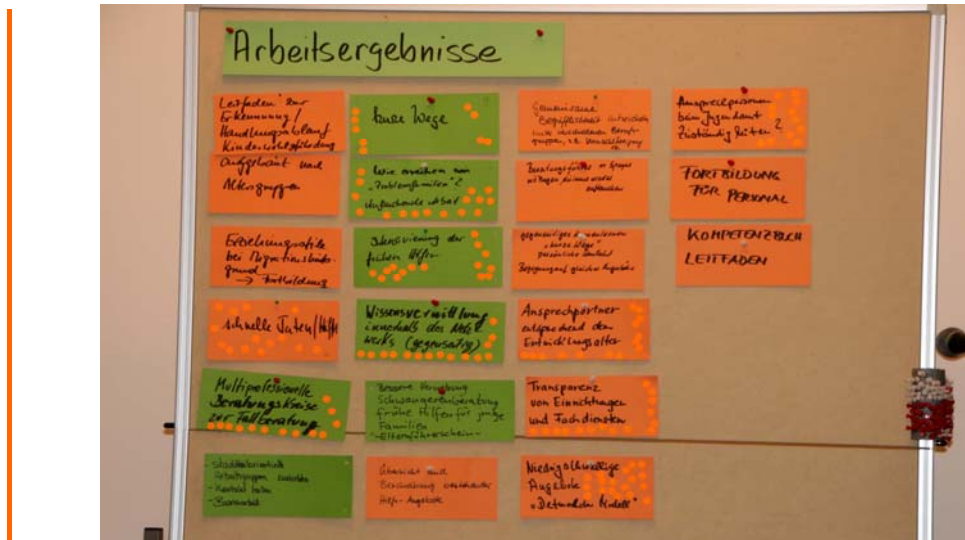 Arbeitsergebnisse
Leitfaden zur
Erkennung /
Handlungsablauf
Kindeswohlgefährdung
aufgehängt und
Altersgruppen
Erziehungsstile
bei Migrationshinter-
grund
→ Fortbildung
schnelle Taten/Hilfe
Multiprofessionelle
Beratungskreise
zur Fallberatung
- Stadtteilorientiert
Arbeitsgruppen
- Kontakt halten
kurze Wege
Wie erreichen wir
"Problemfamilien"?
Intensivierung der
frühen Hilfen
Wissensvermittlung
innerhalb des Netz-
werks (gegenseitig)
Bessere Vernetzung
Schwangerenberatung
frühe Hilfen für junge
Familien
-Elternführerschein-
Übersicht und
Beschreibung vorhandener
Hilfs-Angebote
Gemeinsame
Begrifflichkeit zwischen
gruppen, z.B.
gegenseitiges Kennenlernen
"kurze Wege"
persönlicher Kontakt
Begegnung auf gleicher Augenhöhe
Ansprechpartner
entsprechend dem
Entwicklungsalter
Transparenz
von Einrichtungen
und Fachdiensten
Niedrigschwellige
Angebote
"Detmolder Modell"
Ansprechpersonen
beim Jugendamt
Zuständigkeiten?
FORTBILDUNG
FÜR PERSONAL
KOMPETENZBUCH
LEITFADEN